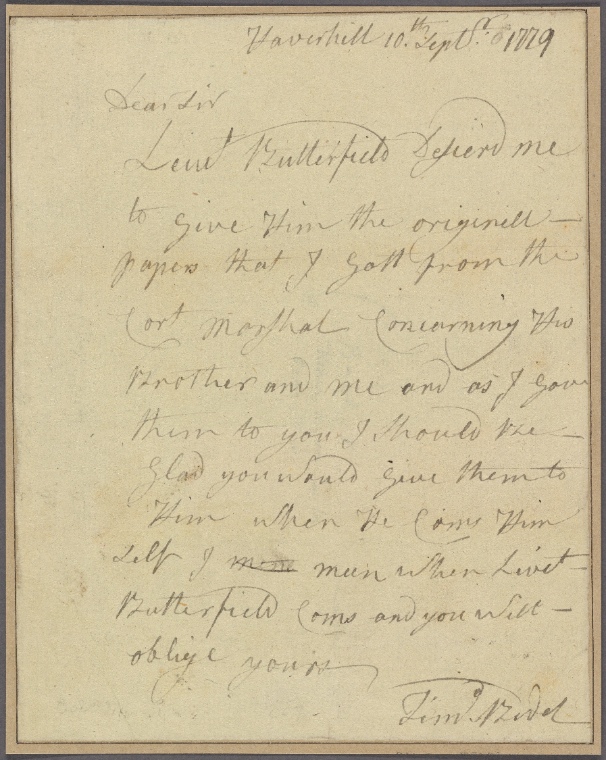 Haverhill 10.th Septr. 1779
Dear Sir
Leiut Butterfield Desierd me
to give Him the originell
papers that I gott from the
Cort Marshal Concearning His
Brother and me and as I gave
them to you I should Be
Glad you would give them to
Him when He Coms Him
self I mean when Livet
Butterfield Coms and you will
oblige yours
Timo. Bedel